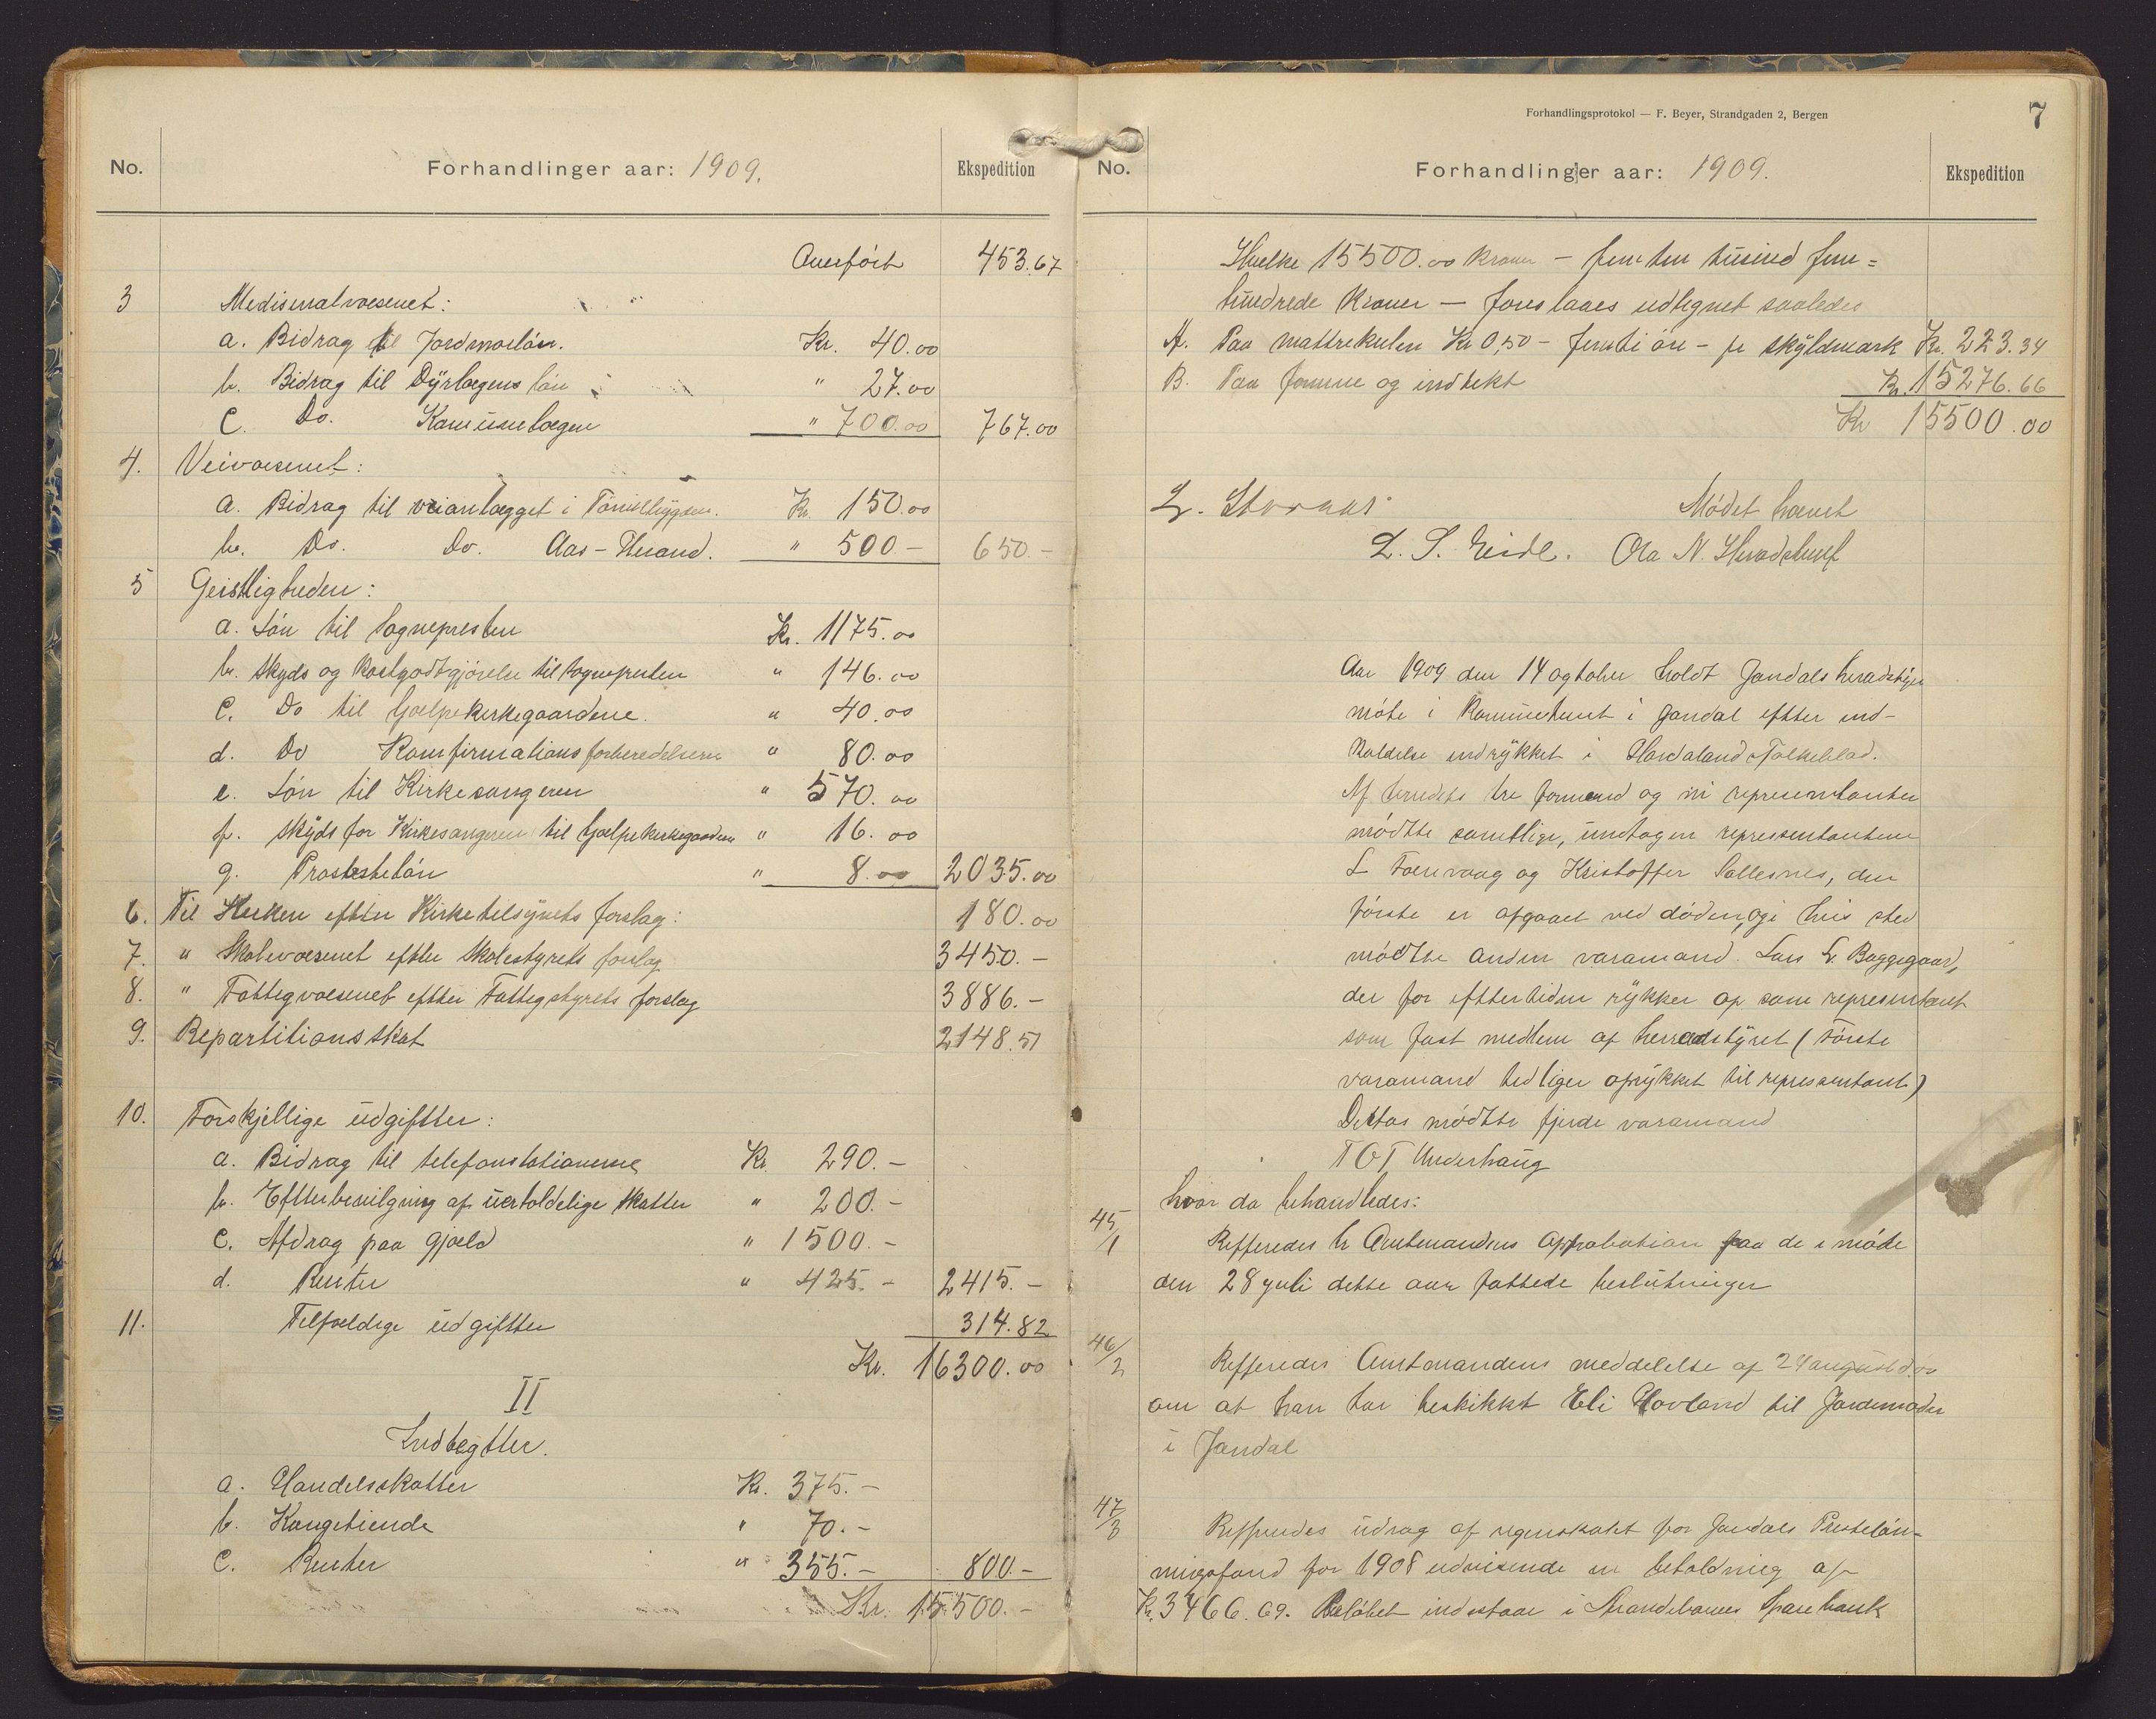 No. Forhandlinger aar: 1909. Ekspedition
Overført 453.67
3 Medisinalvæsenet:
a. Bidrag til Jordmorløn. Kr. 40.00
b. Bidrag til Dyrlægens løn " 27.00
c. Do. Komunelægen " 700.00 767.00
4. Veivæsenet:
a. Bidrag til veianlægget i Kr. 150.00
b. Do. Do. Aas-Herand. " 500 - 650.-
5 Geistligheden:
a. Løn til Sognepresten Kr. 1175.00
b. Skyds og Kostgodtgjørelse til sognepresten " 146.00
c. Do til hjælpekirkegaardene. " 40.00
d. Do Komfirmationsforberedelsern " 80.00
e. Løn til Kirkesangeren " 570.00
f. Skyds for Kirkesangeren til hjælpekirkegaardene " 16.00
g. Prosteløn " 8.00 2035.00
6. Til Kirken efter Kirketilsynets forslag: 180.00
7. " Skolevæsenet efter Skolestyrets forslag 3450.-
8. " Fattigvæsenet efter Fattigstyrets forslag 3886.-
9. Repartitionsskat 2148.51
10. Forskjellige udgifter:
a. Bidrag til telefonstationerne Kr. 290.-
b. Efterbevilgning af uerholdelige Skatter " 200.-
c. Afdrag paa gjæld " 1500.-
d. Renter " 425.- 2415.-
11. Tilfældige udgifter 314.82
Kr. 16300.00
II
Indtægtter.
a. Handelsskatter Kr. 375.-
b. Kongetiende " 70.-
c. Renter " 355.- 800.-
Kr. 15500.-
Forhandlingsprotokol — F. Beyer, Strandgaden 2, Bergen
7
No. Forhandlinger aar: 1909. Ekspedition
Hvilke 15500.00 Kroner - femten tusind fem=
hundrede Kroner - foreslaaes udlignet saaledes
A. Paa mattrekulen Kr 0,50 - femti øre - pr skyldmark Kr. 223.34
B. Paa formue og indtekt Kr. 15276.66
Kr 15500.00
Mødet hævet
L. S. Eide. Ola N.
Aar 1909 den 14 ogtober holdt Jondals heradstyre
møte i Komunehuset i Jondal efter ind-
kaldelse indrykket i Hordaland Folkeblad.
Af herredets tre formænd og ni representanter
mødtte samtlige, undtagen repressentantene
L Torevaag og Kristoffer Sollesnes, den
første er afgaaet ved døden, og i hvis sted
mødtte anden varamand. Lars L. Byggegaard,
der for eftertiden rykker op som representant
som fast medlem af herredstyret (Første
varamand tidliger oprykket til repressentant)
Desto mødtte fjerde varamand
T O T Underhaug
hvor da behandledes:
45/1 Reffereder hr Amtmandens approbation paa de i møde
den 28 juli dette aar fattede beslutninger
46/2 Reffereder Amtmandens meddelelse af 24 august d.a.
om at han har beskikket Eli Hovland til Jordemoder
i Jondal
47/3 Refferedes udrag af regnskabet for Jondals Presteløn-
ningsfond for 1908 udvisende en beholdning af
Kr. 3466.69. Beløbet indestaar i Strandebarms Sparebank